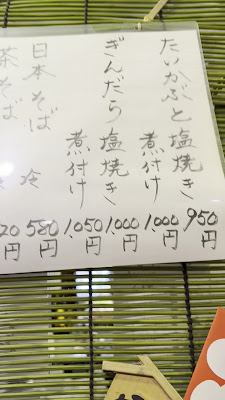 たいかぶと塩焼き 950円
煮付け 1,000円
ぎんだら塩焼き 1,000円
煮付け 1,050円
日本そば 冷 580円
茶そば 20円